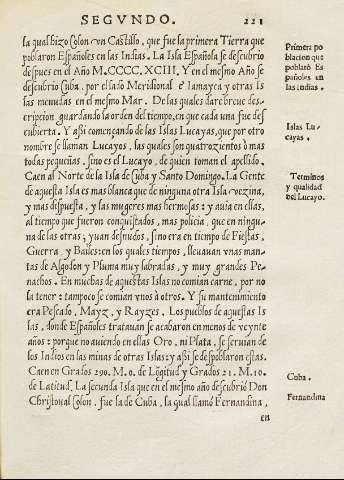 SEGVNDO. 221
la qual hizo Colon vn Castillo, que fue la primera Tierra que
poblaron Españoles en las Indias. La Isla Española se descubrio
despues en el Año M. CCCC. XCIII. Y en el mesmo Año se
descubrio Cuba, por el lado Meridional e Iamayca y otras Is
las menudas en el mesmo Mar. De las quales dare breue des-
cripcion guardando la orden del tiempo, en que cada una fue des
cubierta. Y assi començando de las Islas Lucayas, que por otro
nombre se llaman Lucayos, las quales son quatrozientos ò mas
todas pequeñas, sino es el Lucayo, de quien toman el apellido.
Caen al Norte de la Isla de Cuba y Santo Domingo. La Gente
de aquesta Isla es mas blanca que de ninguna otra Isla vezina,
y mas dispuesta, y las mugeres mas hermosas: y auia en ellas,
al tiempo que fueron conquistados, mas policia, que en ningu-
na de las otras, yuan desnudos, sino era en tiempo de Fiestas,
Guerra, y Bailes: en los quales tiempos, lleuauan vnas man-
tas de Algodon y Pluma muy labradas, y muy grandes Pe-
nachos. En muchas de aquestas Islas no comian carne, por no
la tener: tampoco se comian vnos à otros. Y su mantenimiento
era Pescado, Mayz, y Rayzes. Los pueblos de aquestas Is
las, donde Españoles tratauan se acabaron en menos de veynte
años: porque no auiendo en ellas Oro, ni Plata, se seruian de
los Indios en las minas de otras Islas: y assi se despoblaron estas.
Caen en Grados 290. M. 0. de Lõgitud y Grados 21. M. 10.
de Latitud. La secunda Isla que en el mesmo año descubriò Don
Christoual Colon, fue la de Cuba, la qual llamò Fernandina,
en
Primera po
blacion que
poblarõ Es
pañoles en
las Indias.
Islas Lu-
cayas.
Terminos
y qualidad
del Lucayo.
Cuba.
Fernandina